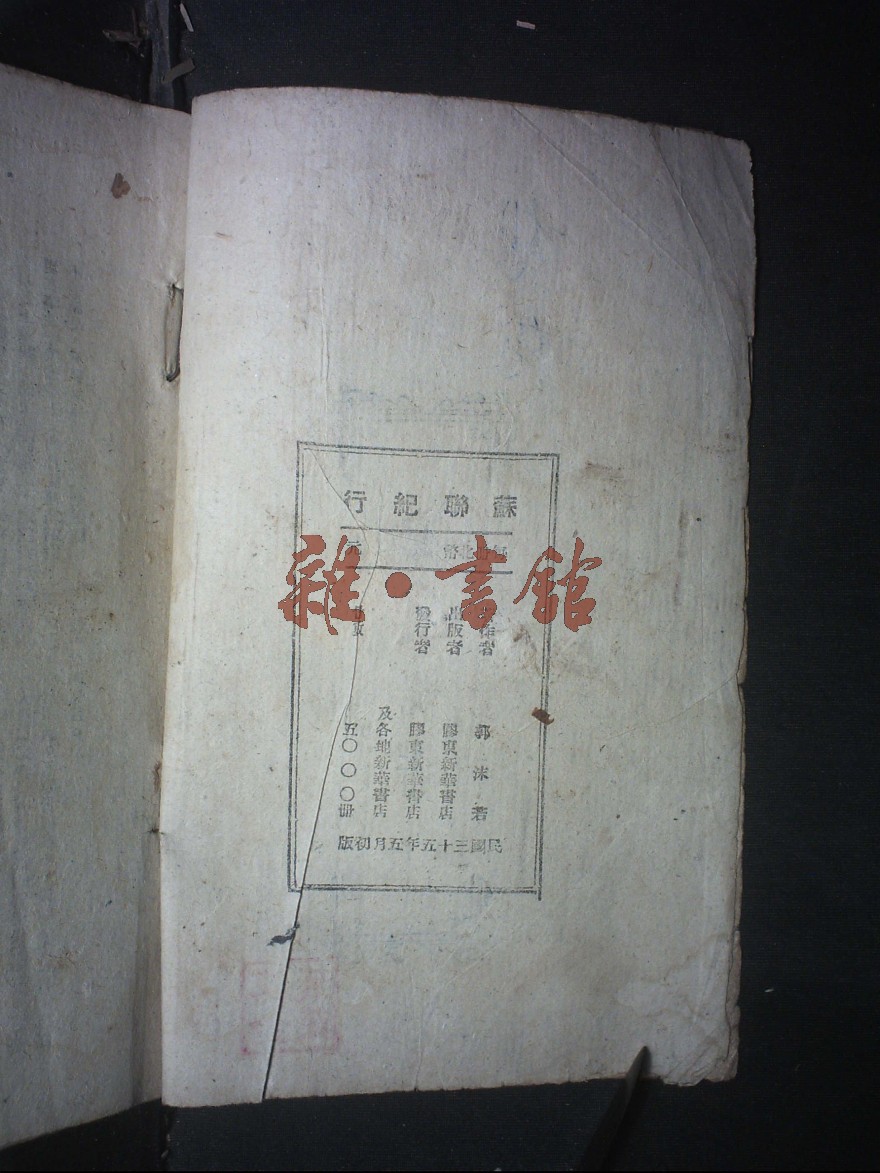 蘇聯紀行
北幣 元
著作者 郭沫若
出版者 膠東新華書店
發行者 膠東新華書店
及各地新華書店
五〇〇〇冊
民國三十五年五月初版
雜·書館